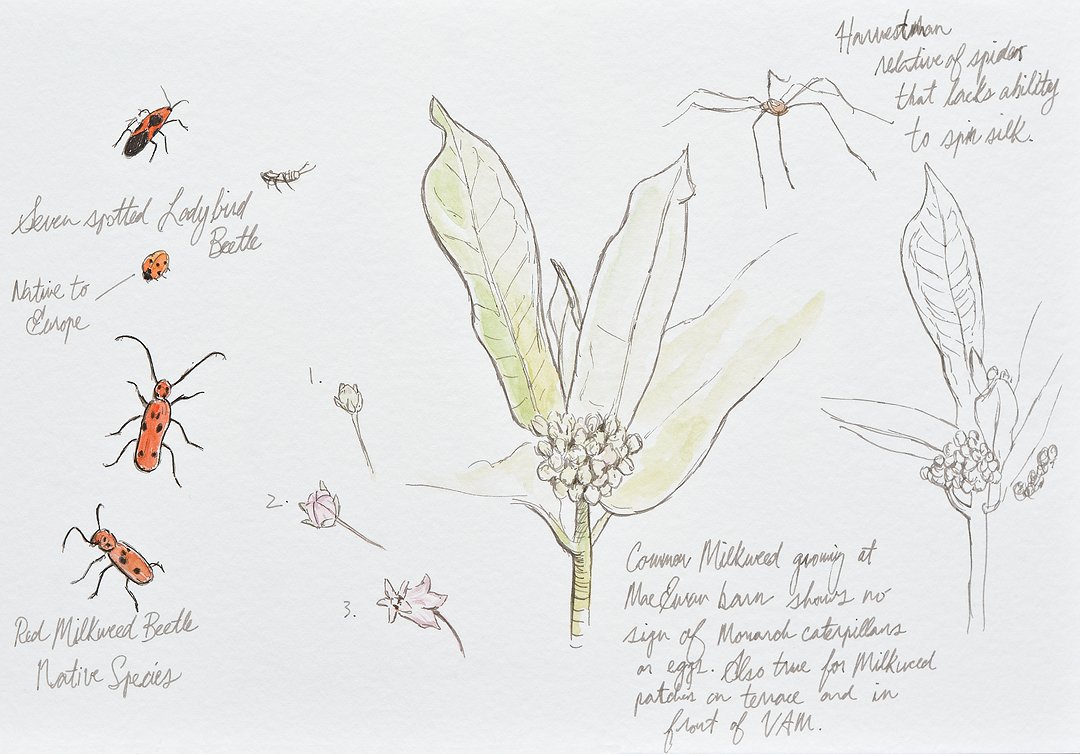 Harvestman
relative of spider
that lacks ability
to spin silk.
Seven spotted Ladybird
Beetle
Native to
Europe
1.
2.
3.
Red Milkweed Beetle
Native Species
Common Milkweed growing at
MacEwan barn shows no
sign of Monarch caterpillars
or eggs. Also true for Milkweed
patches on terrace and in
front of VAM.